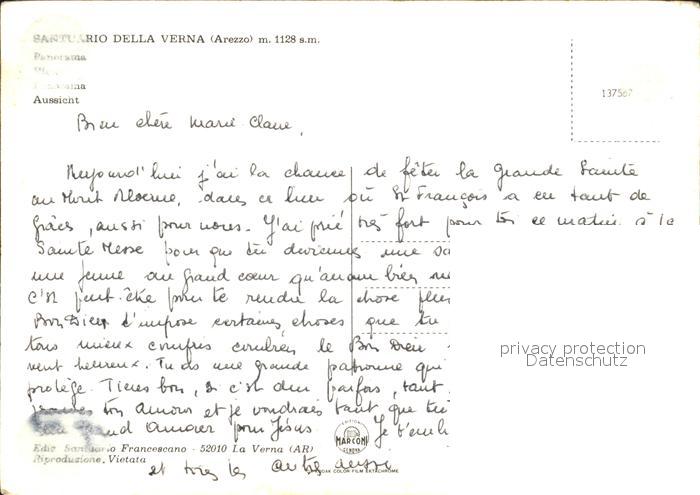 SANTUARIO DELLA VERNA (Arezzo) m. 1128 s.m.
Panorama
Vue
Panorama
Aussicht
137567
Bien chère Marie-Claire,
Aujourd'hui j'ai la chance de fêter la Grande Sainte
au Mont Alverne, dans ce lieu où St François a eu tant de
Grâces, aussi pour nous. J'ai prié très fort pour toi ce matin à la
Sainte Messe pour que tu deviennes une sa
une femme au Grand cœur qu'anime bien
C'est peut-être pour te rendre la chose plus
Bon Dieu t'impose certaines choses que tu
tous mieux compris combien le Bon Dieu
vent heureux. Tu as une grande patronne qui
protège. Tiens bon, si c'est dur parfois, tant
ton amour et je voudrais tant que tu
grand amour pour Jésus Je t'em
et tous les autres aussi
privacy protection
Datenschutz
Ediz. Santuario Francescano - 52010 La Verna (AR)
Riproduzione Vietata
MARCONI
GENOVA
KODAK COLOR FILM EKTACHROME